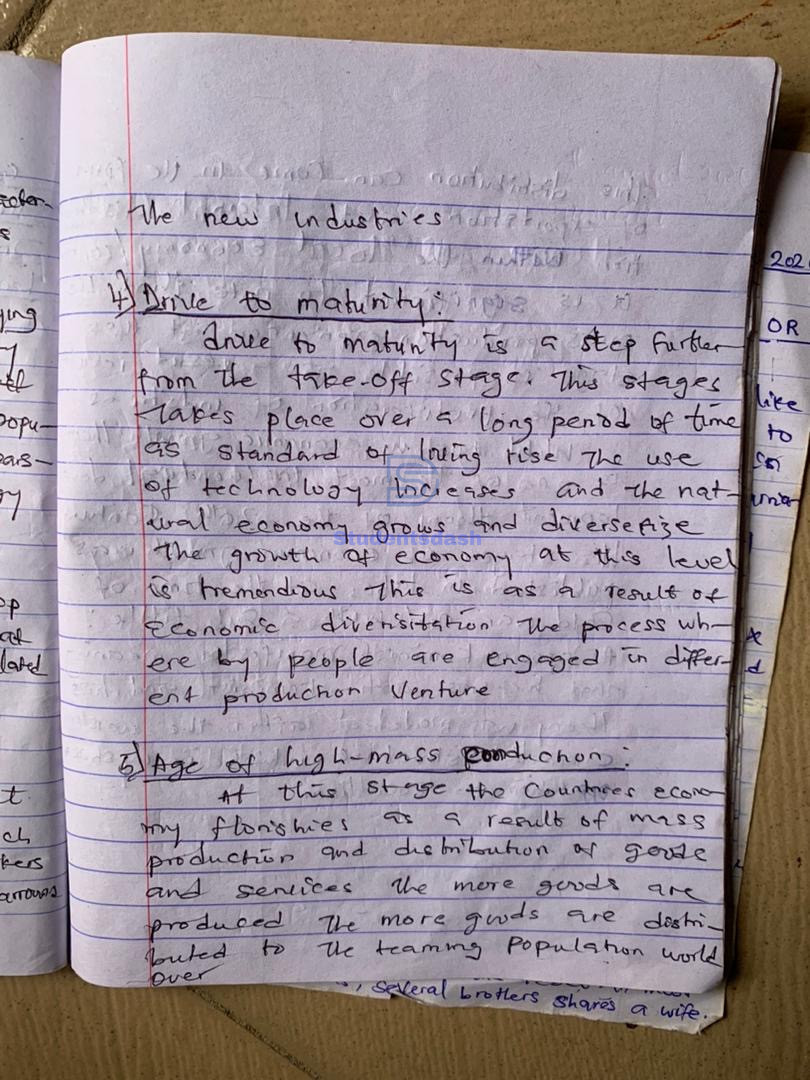 the new industries
4) Drive to maturity:
drive to maturity is a step further
from the take-off stage. This stages
takes place over a long period of time
as standard of living rise the use
of technology increases and the nat-
ural economy grows and diversefize
Studentsdash
the growth of economy at this level
is tremendious this is as a result of
economic diversitation the process wh-
ere by people are engaged in differ-
ent production venture
5) Age of high-mass production:
At this stage the Countries econo-
my florishies as a result of mass
production and distribution of goods
and services the more goods are
produced the more goods are distri-
buted to the teaming population world
over
ying
popu-
y
op
at
lated
t
ch
kers
202
OR
like
to
, several brothers shares a wife.